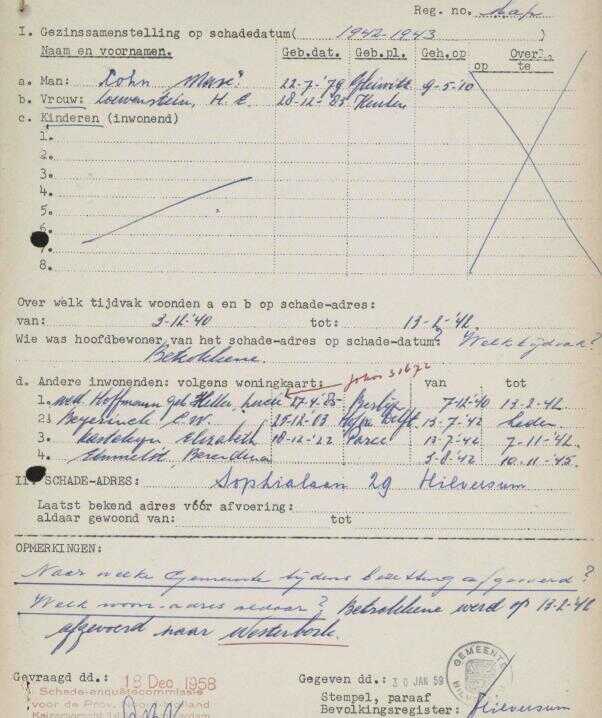 Reg. no. Kap
I. Gezinssamenstelling op schadedatum( 1942-1943 )
Naam en voornamen. Geb.dat. Geb.pl. Geh.op Overl.
op te
a. Man: Cohn Max 22-7-'79 Gleiwitz 9-5-10
b. Vrouw: Loewenstein, H. E. 28-12-'85
c. Kinderen (inwonend)
1.
2.
3.
4.
5.
6.
7.
8.
Over welk tijdvak woonden a en b op schade-adres:
van: 3-12-'40 tot: 13-2-'42.
Wie was hoofdbewoner van het schade-adres op schade-datum: Welk tijdvak?
Betrokkene.
d. Andere inwonenden: volgens woningkaart: van tot
1. wed. Hoffmann geb. Heller, 27-4-85 Berlijn 7-12-40 13-2-42.
2. Beyerinck C.W. 25-12-03 Delft 13-7-'42 heden.
3. Elizabeth 18-12-'22 13-7-42 7-11-42.
4. Berendina 3-8-42 10-11-'45.
II. SCHADE-ADRES: Sophialaan 29 Hilversum
Laatst bekend adres vóór afvoering:
aldaar gewoond van: tot
OPMERKINGEN:
Naar welke Gemeente tijdens bezetting afgevoerd?
Welk woon-adres aldaar? Betrokkene werd op 13-2-42
afgevoerd naar Westerbork.
Gevraagd dd.: 18 Dec 1958 Gegeven dd.: 30 JAN 59
Schade-enquêtecommissie Stempel, paraaf
voor de Prov. Noord-Holland Bevolkingsregister: Hilversum
GEMEENTE